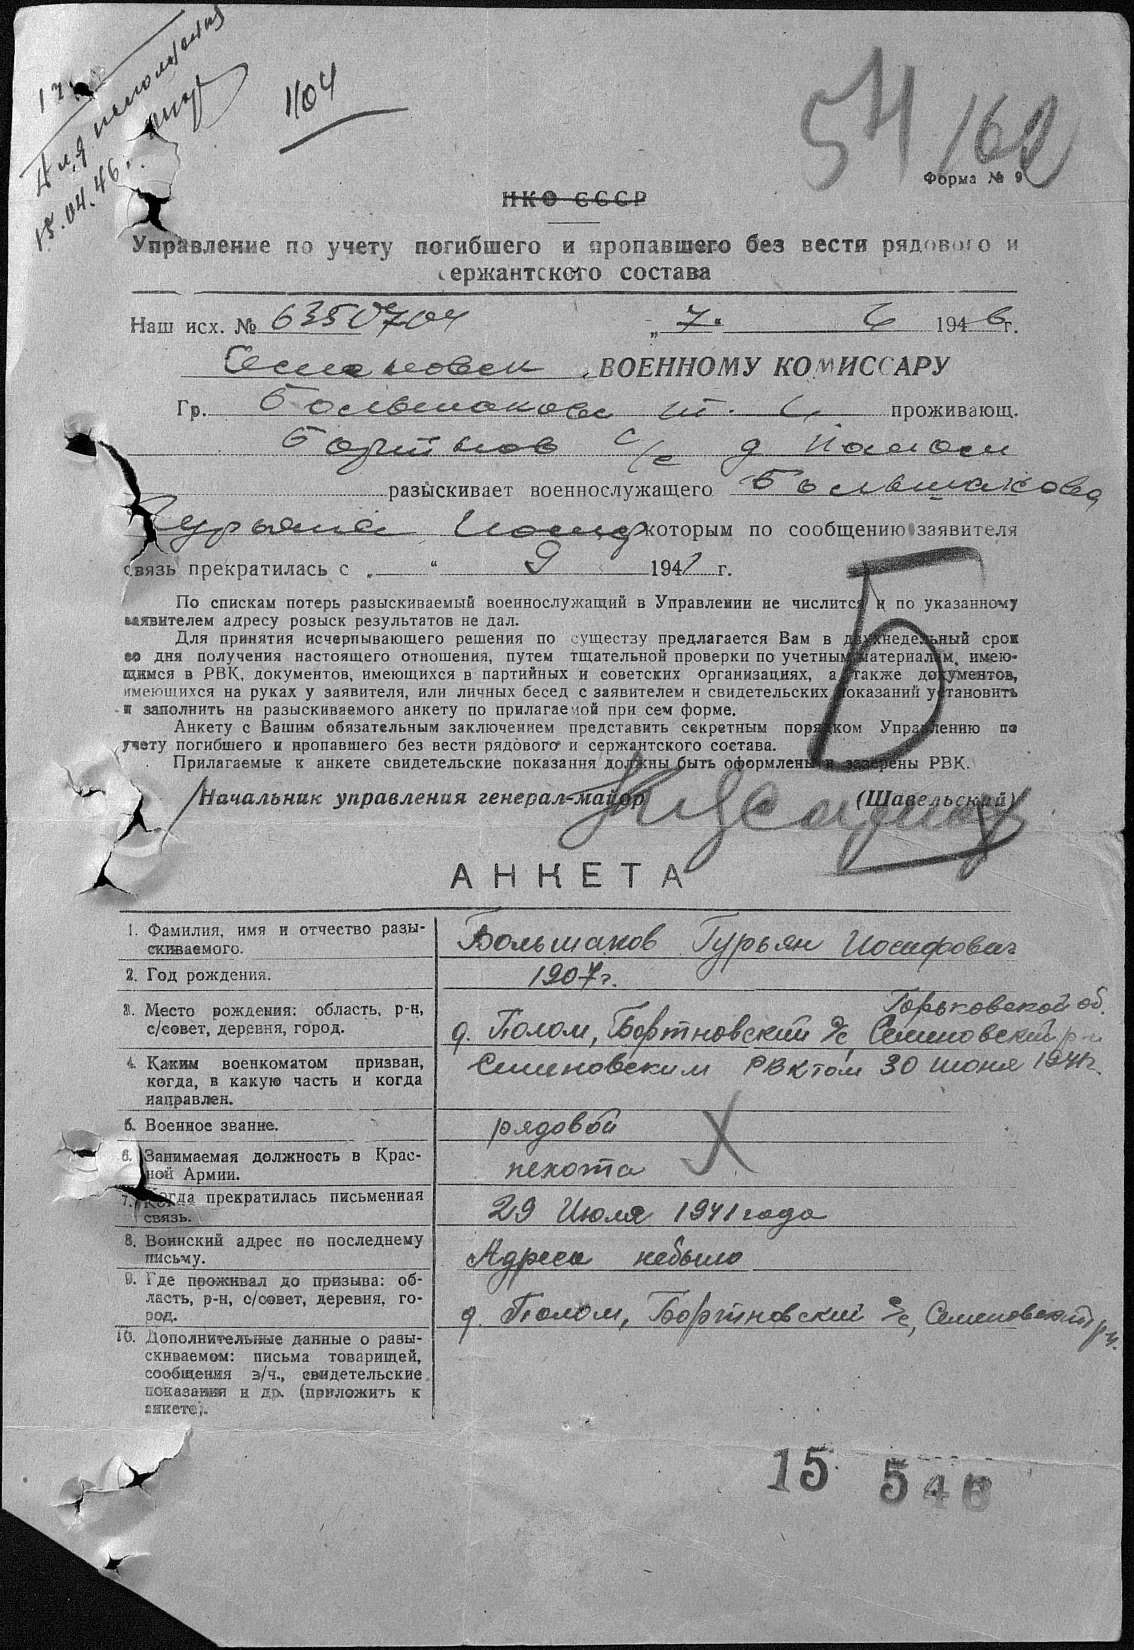 Для исполнения
15.04.46г.
1104
54
162
Форма № 9
НКО СССР
Управление по учету погибшего и пропавшего без вести рядового и
сержантского состава
Наш исх. № 6350704 „ 7. 6 1946г.
ВОЕННОМУ КОМИССАРУ
Гр. Большакова проживающ.
с/с д
разыскивает военнослужащего Большакова
Гурьяна которым по сообщению заявителя
связь прекратилась с „ “ 9 1941 г.
По спискам потерь разыскиваемый военнослужащий в Управлении не числится и по указанному
заявителем адресу розыск результатов не дал.
Для принятия исчерпывающего решения по существу предлагается Вам в двухнедельный срок
со дня получения настоящего отношения, путем тщательной проверки по учетным материалам, имею-
щимся в РВК, документов, имеющихся в партийных и советских организациях, а также документов,
имеющихся на руках у заявителя, или личных бесед с заявителем и свидетельских показаний установить
и заполнить на разыскиваемого анкету по прилагаемой при сем форме.
Анкету с Вашим обязательным заключением представить секретным порядком Управлению по
учету погибшего и пропавшего без вести рядового и сержантского состава.
Прилагаемые к анкете свидетельские показания должны быть оформлены и заверены РВК.
Б
Начальник управления генерал-майор (Шавельский)
АНКЕТА
1. Фамилия, имя и отчество разы-
скиваемого.
Большаков Гурьян Иосифович
2. Год рождения.
1907г.
3. Место рождения: область, р-н,
с/совет, деревня, город.
Горьковской об.
д. Полом, Бортновский с/с, Семеновский р-н
4. Каким военкоматом призван,
когда, в какую часть и когда
направлен.
Семеновским РВКтом 30 июня 1941г.
5. Военное звание.
рядовой
6. Занимаемая должность в Крас-
ной Армии.
пехота
7. Когда прекратилась письменная
связь.
29 Июля 1941 года
8. Воинский адрес по последнему
письму.
Адреса небыло
9. Где проживал до призыва: об-
ласть, р-н, с/совет, деревня, го-
род.
д. Полом, Бортновский с/с, Семеновский р-н.
10. Дополнительные данные о разы-
скиваемом: письма товарищей,
сообщения в/ч., свидетельские
показания и др. (приложить к
анкете).
15 546